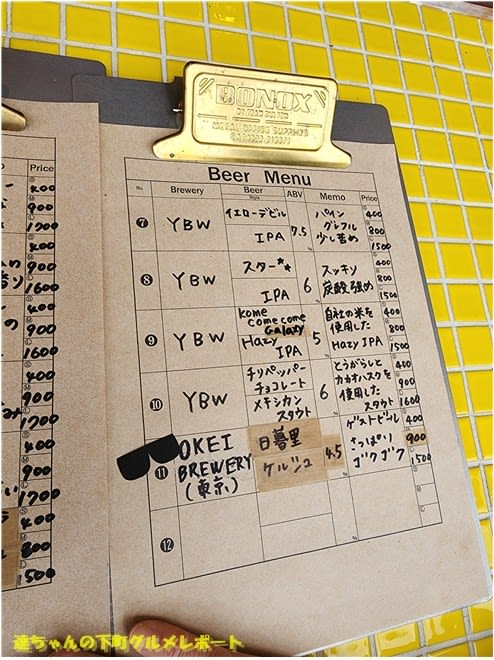 BONOX
Beer Menu
No Brewery Beer Style ABV Memo Price
⑦ YBW イエローデビル IPA 7.5% パイン グレフル 少し苦め S 400 M 800 L 1500
⑧ YBW スター** IPA 6% スッキリ 炭酸強め S 400 M 800 L 1500
⑨ YBW Kome come come Galaxy Hazy IPA 5% 自社の米を 使用した Hazy IPA S 400 M 800 L 1500
⑩ YBW チリペッパー チョコレート メキシカン スタウト 6% とうがらしと カカオハスクを 使用した スタウト S 400 M 900 L 1600
⑪ OKEI BREWERY (東京) 日暮里 ケルシュ 4.5% ゲストビール さっぱり ゴクゴク S 400 M 900 L 1500
⑫ % S M L
Price
400
900
1700
400
900
1600
400
900
1600
400
900
1700
400
900
1700
400
800
1500
達ちゃんの下町グルメレポート